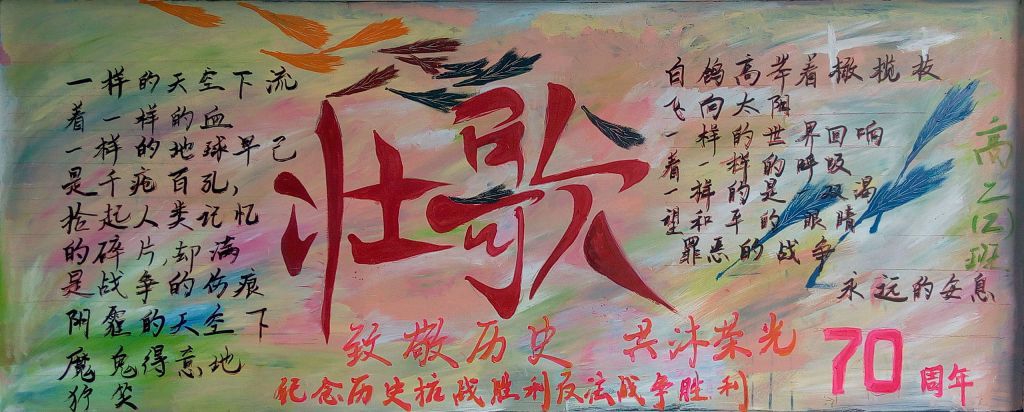 一样的天空下流
着一样的血
一样的地球早已
是千疮百孔,
拾起人类记忆
的碎片,却满
是战争的伤痕
阴霾的天空下
魔鬼得意地
狞笑
壮歌
白鸽高举着橄榄枝
飞向太阳
一样的世界回响
着一样的呼吸
一样的是一双渴
望和平的眼睛
罪恶的战争
永远的安息
高二(2)班
致敬历史 共沐荣光
纪念历史抗战胜利反法战争胜利
70周年